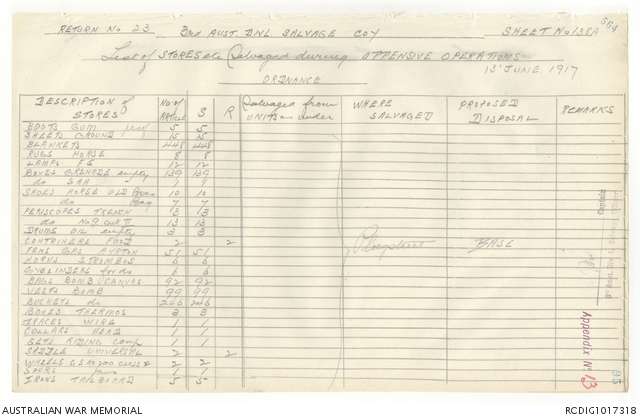 RETURN No 23 3RD AUST. DNL SALVAGE COY SHEET No 138A
List of STORES etc Salvaged during OFFENSIVE OPERATIONS
15 JUNE. 1917
ORDNANCE
DESCRIPTION of STORES No of ARTICLES S R Salvaged from UNITS as under WHERE SALVAGED PROPOSED DISPOSAL REMARKS
BOOTS GUM 5 5
SHEETS GROUND 15 15
BLANKETS 448 448
RUGS HORSE 8 8
LAMPS 12 12
BOXES GRENADE empty 139 139
do SAA
SHOES HORSE OLD 10 10
do 7 7
PERISCOPES TRENCH 13 13
do No 9 13 13
DRUMS OIL empty 3 3
CONTAINERS FOOD 2 R
FANS GAS AYRTON 51 51 Ploegsteert BASE
HORNS STROMBOS 6 6
CYLINDERS for do 6 6
BAGS BOMB CANVAS 92 92
VESTS BOMB 99 99
BUCKETS do 246 246
BOXES THERMOS 3 3
TRACES WIRE 1 1
COLLARS HEAD 1 1
SETS RIDING Comp 1 1
SADDLE UNIVERSAL 2 R
WHEELS G.S. 2 2
SPURS 1 1
IRONS TAILBOARD 5 5
Appendix No 13
95
AUSTRALIAN WAR MEMORIAL RCDIG1017318